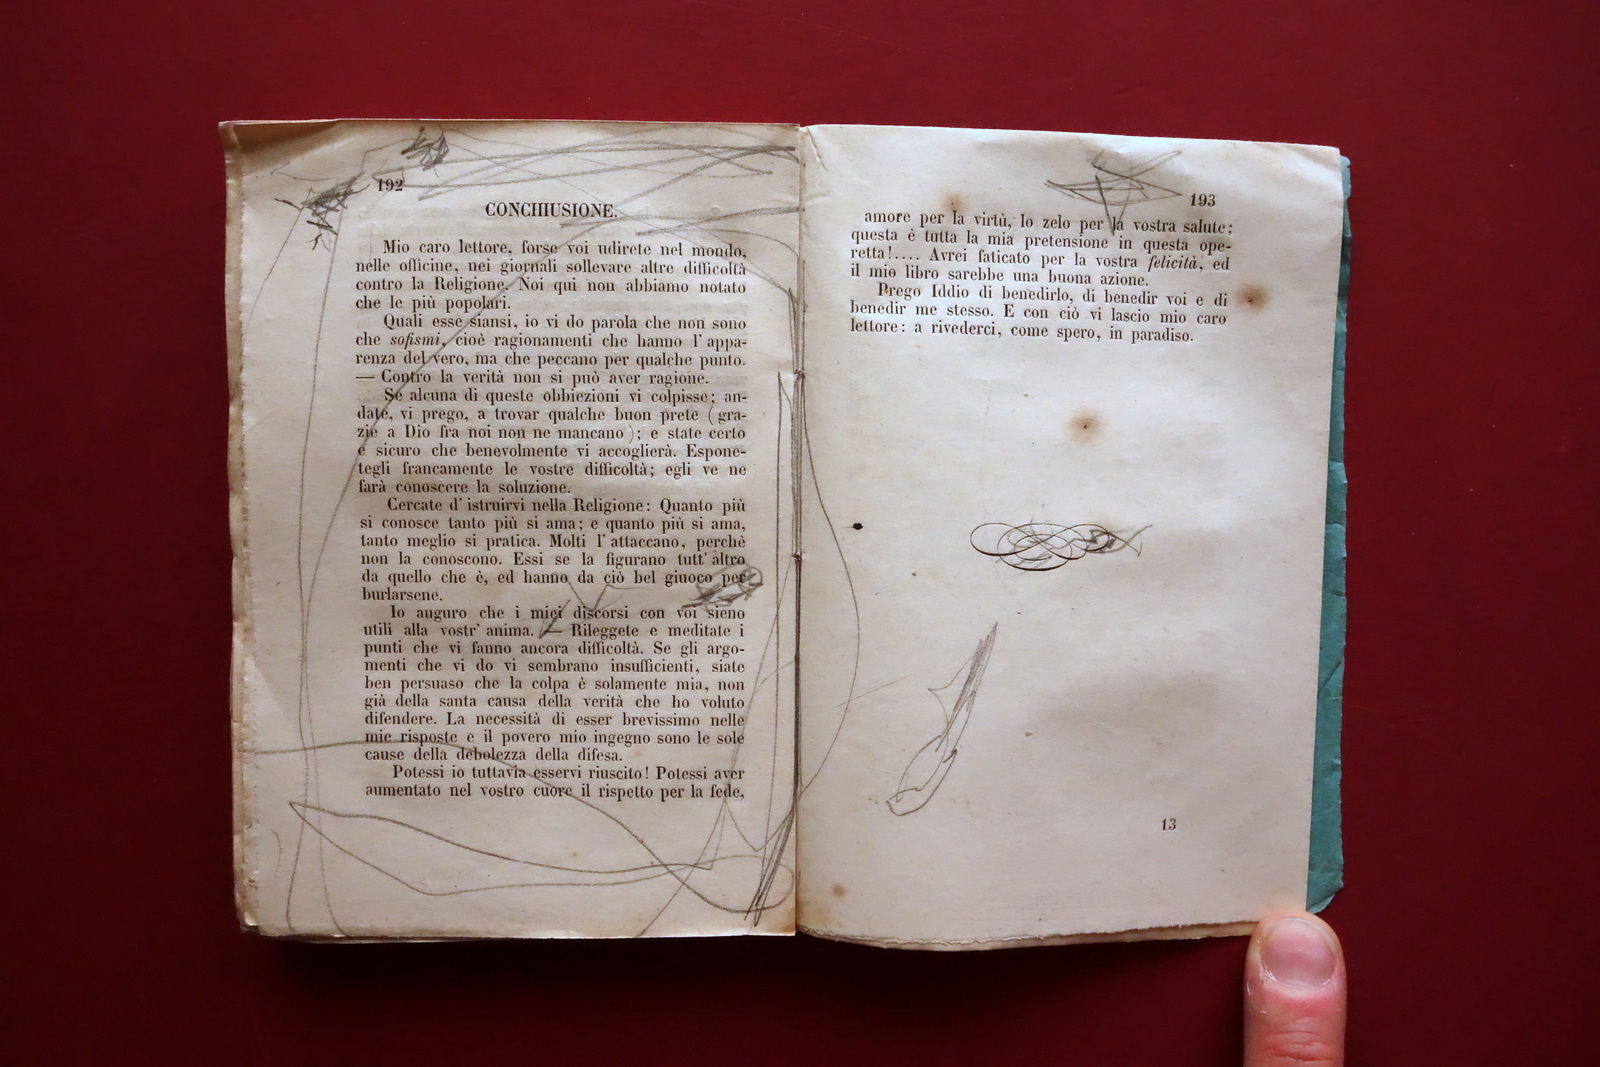 192
CONCHIUSIONE.
Mio caro lettore, forse voi udirete nel mondo,
nelle officine, nei giornali sollevare altre difficoltà
contro la Religione. Noi qui non abbiamo notato
che le più popolari.
Quali esse siansi, io vi do parola che non sono
che sofismi, cioè ragionamenti che hanno l'appa-
renza del vero, ma che peccano per qualche punto.
— Contro la verità non si può aver ragione.
Se alcuna di queste obbiezioni vi colpisse; an-
date, vi prego, a trovar qualche buon prete (gra-
zie a Dio fra noi non ne mancano); e state certo
e sicuro che benevolmente vi accoglierà. Espone-
tegli francamente le vostre difficoltà; egli ve ne
farà conoscere la soluzione.
Cercate d'istruirvi nella Religione: Quanto più
si conosce tanto più si ama; e quanto più si ama,
tanto meglio si pratica. Molti l'attaccano, perchè
non la conoscono. Essi se la figurano tutt'altro
da quello che è, ed hanno da ciò bel giuoco per
burlarsene.
Io auguro che i miei discorsi con voi sieno
utili alla vostr'anima. — Rileggete e meditate i
punti che vi fanno ancora difficoltà. Se gli argo-
menti che vi do vi sembrano insufficienti, siate
ben persuaso che la colpa è solamente mia, non
già della santa causa della verità che ho voluto
difendere. La necessità di esser brevissimo nelle
mie risposte e il povero mio ingegno sono le sole
cause della debolezza della difesa.
Potessi io tuttavia esservi riuscito! Potessi aver
aumentato nel vostro cuore il rispetto per la fede,
193
amore per la virtù, lo zelo per la vostra salute;
questa è tutta la mia pretensione in questa ope-
retta!.... Avrei faticato per la vostra felicità, ed
il mio libro sarebbe una buona azione.
Prego Iddio di benedirlo, di benedir voi e di
benedir me stesso. E con ciò vi lascio mio caro
lettore: a rivederci, come spero, in paradiso.
13